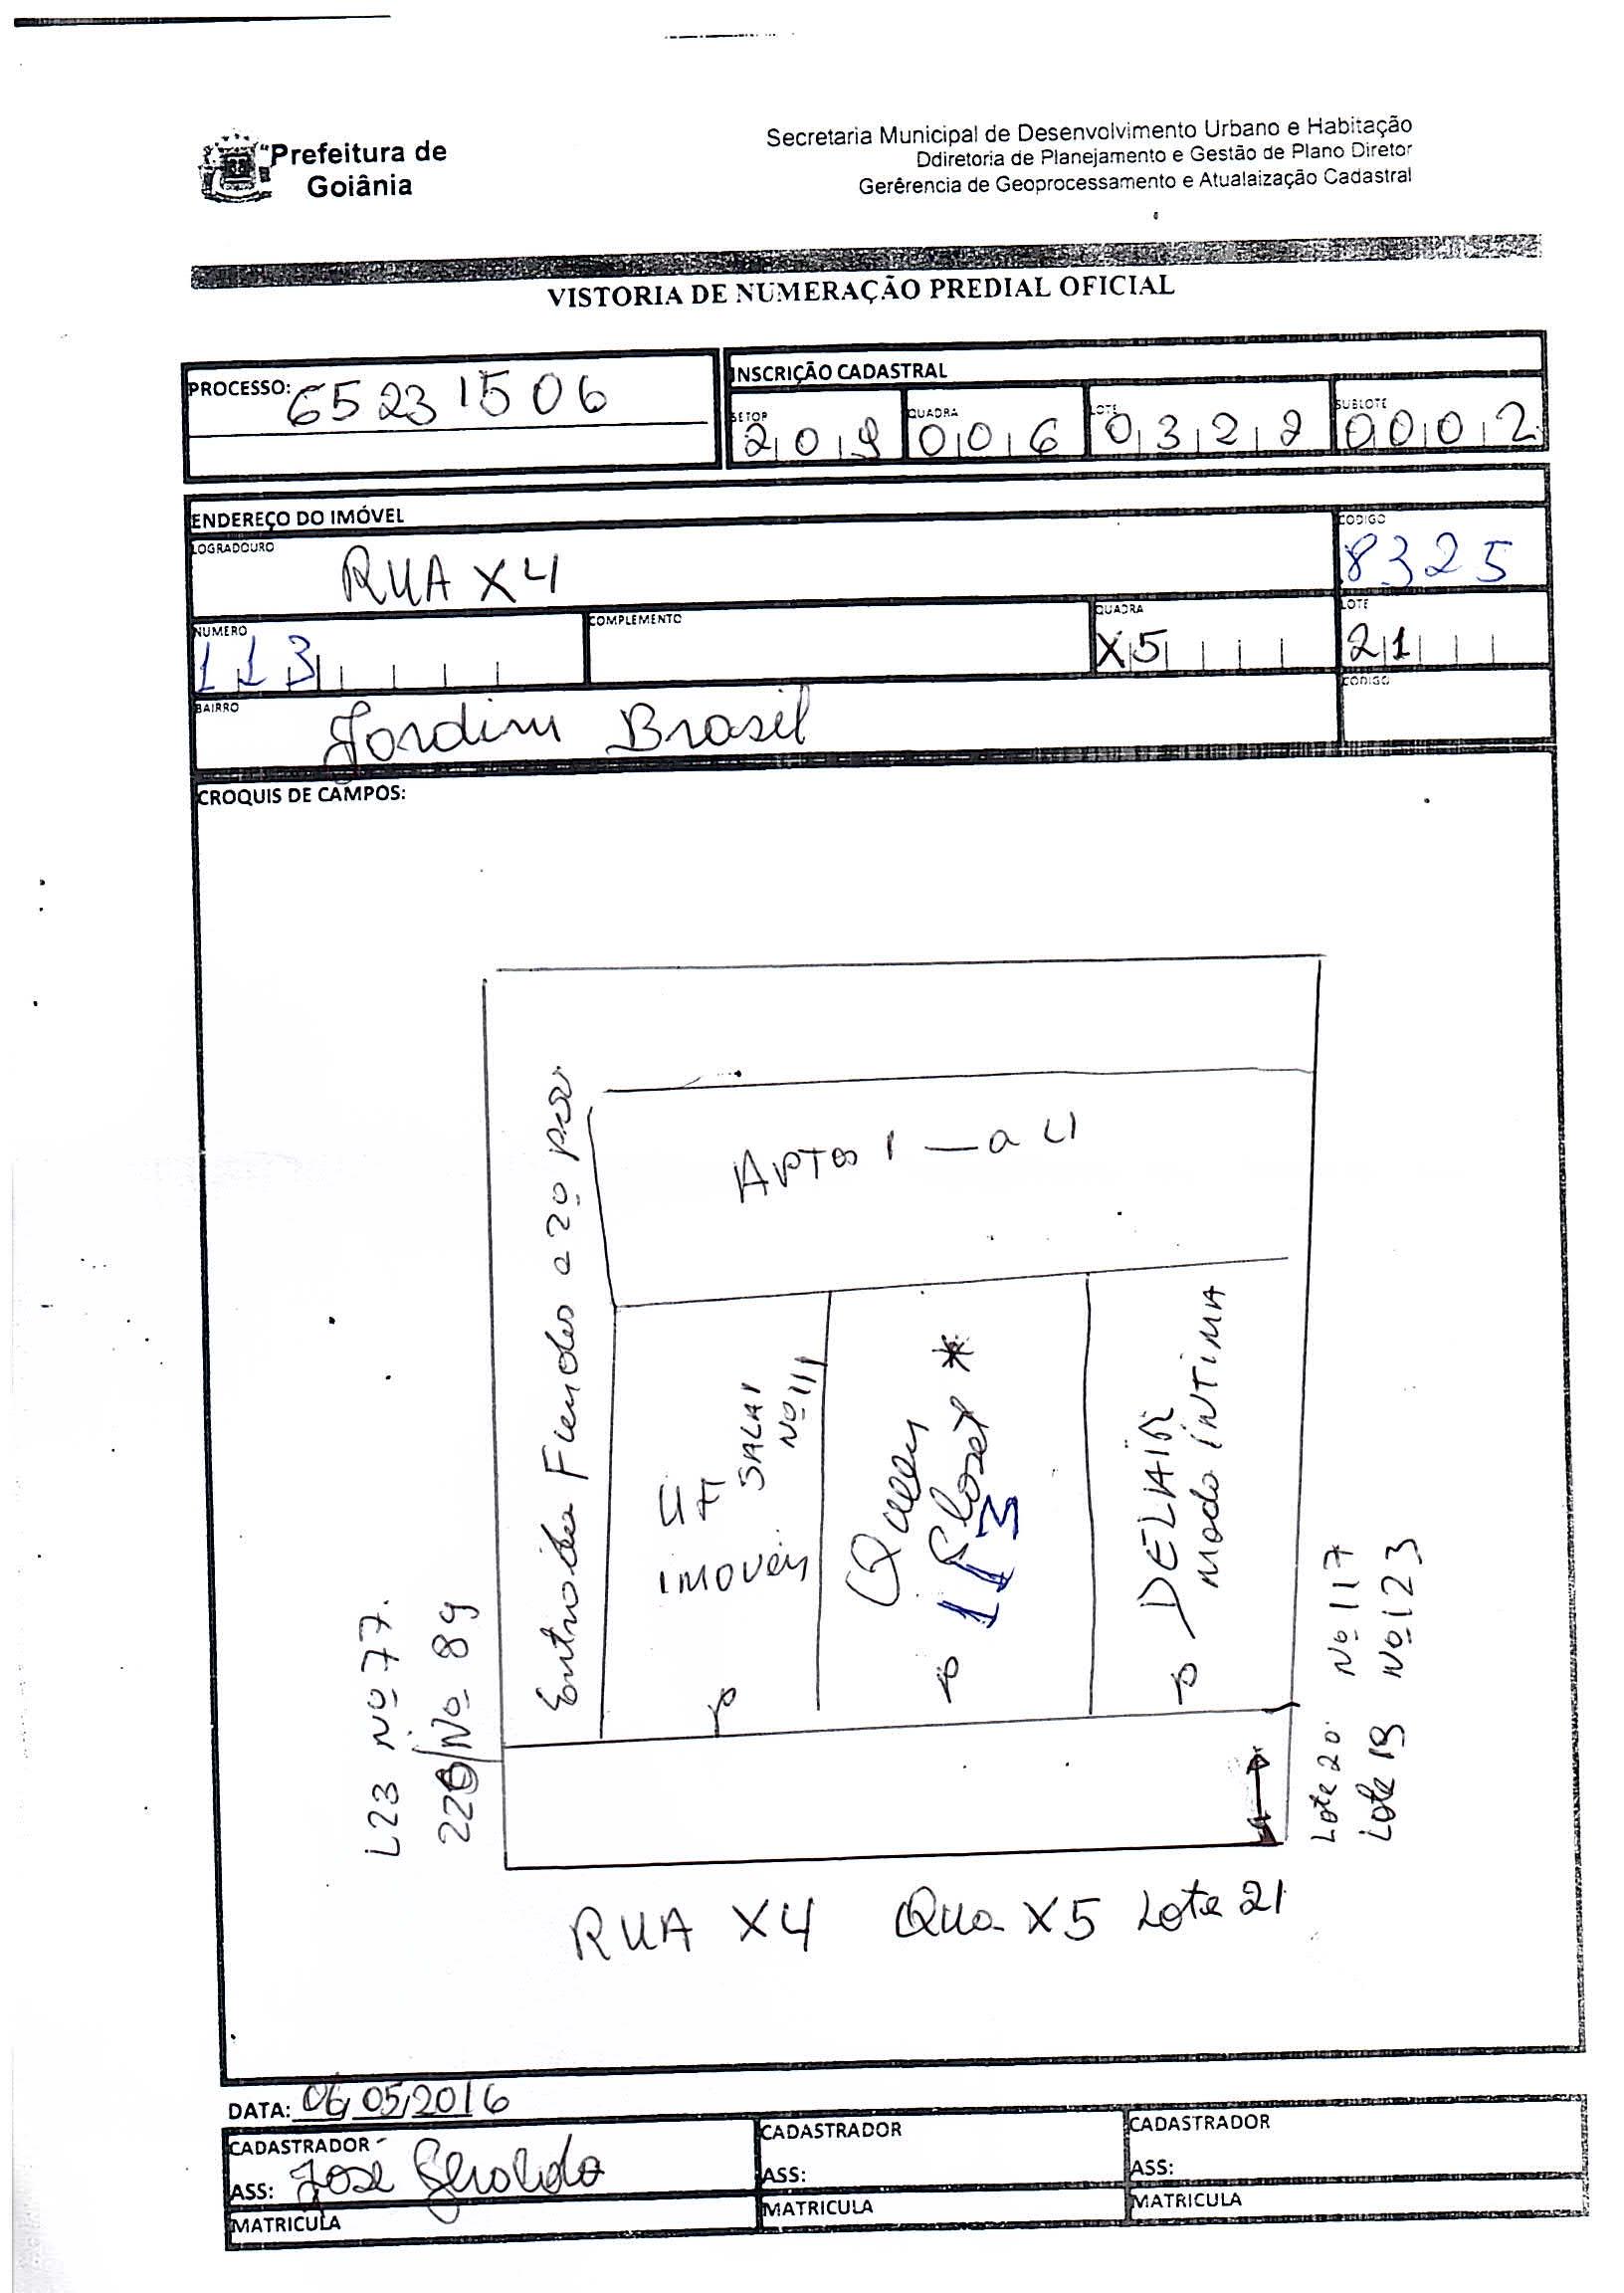 Prefeitura de
Goiânia
Secretaria Municipal de Desenvolvimento Urbano e Habitação
Ddiretoria de Planejamento e Gestão de Plano Diretor
Gerêrencia de Geoprocessamento e Atualaização Cadastral
VISTORIA DE NUMERAÇÃO PREDIAL OFICIAL
PROCESSO: 65231506
INSCRIÇÃO CADASTRAL
SETOR QUADRA LOTE SUBLOTE
209 006 0322 0002
ENDEREÇO DO IMÓVEL
LOGRADOURO RUA X4
CODIGO 8325
NUMERO 113
COMPLEMENTO
QUADRA X5
LOTE 21
BAIRRO Jardim Brasil
CODIGO
CROQUIS DE CAMPOS:
APTOS 1 — a 4
Entrada Fundos e 2º
SALA 1
Nº 111
IMOVEIS
Queen
Closet *
113
DELIAIR
Moda íNTIMA
L23 Nº 77.
Nº 89
Lote 20 Nº 117
Lote 19 Nº 123
RUA X4 Qua X5 Lote 21
DATA: 06/05/2016
CADASTRADOR
ASS: Jose Geraldo
MATRICULA
CADASTRADOR
ASS:
MATRICULA
CADASTRADOR
ASS:
MATRICULA